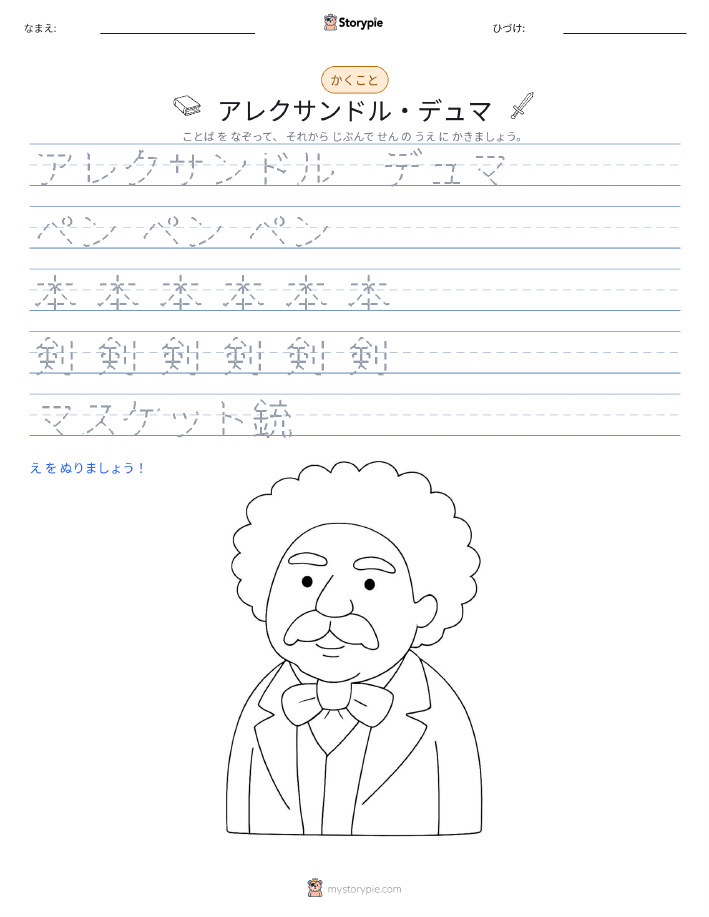 なまえ:
Storypie
ひづけ:
かくこと
アレクサンドル・デュマ
ことば を なぞって、 それから じぶんで せん の うえ に かきましょう。
アレクサンドル デュマ
ペン ペン ペン
本 本 本 本 本 本
剣 剣 剣 剣 剣 剣
マスケット銃
え を ぬりましょう！
mystorypie.com